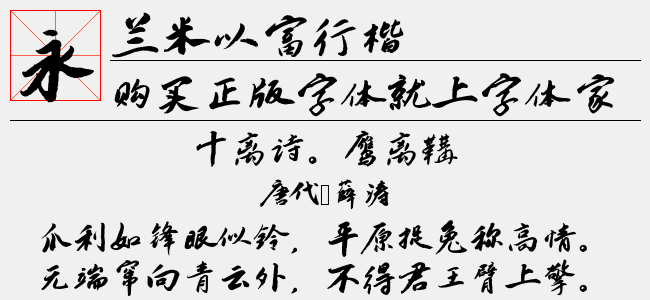 永
兰米以富行楷
购买正版字体就上字体家
十离诗。鹰离鞲
唐代□薛涛
爪利如锋眼似铃，平原捉兔称高情。
无端窜向青云外，不得君王臂上擎。